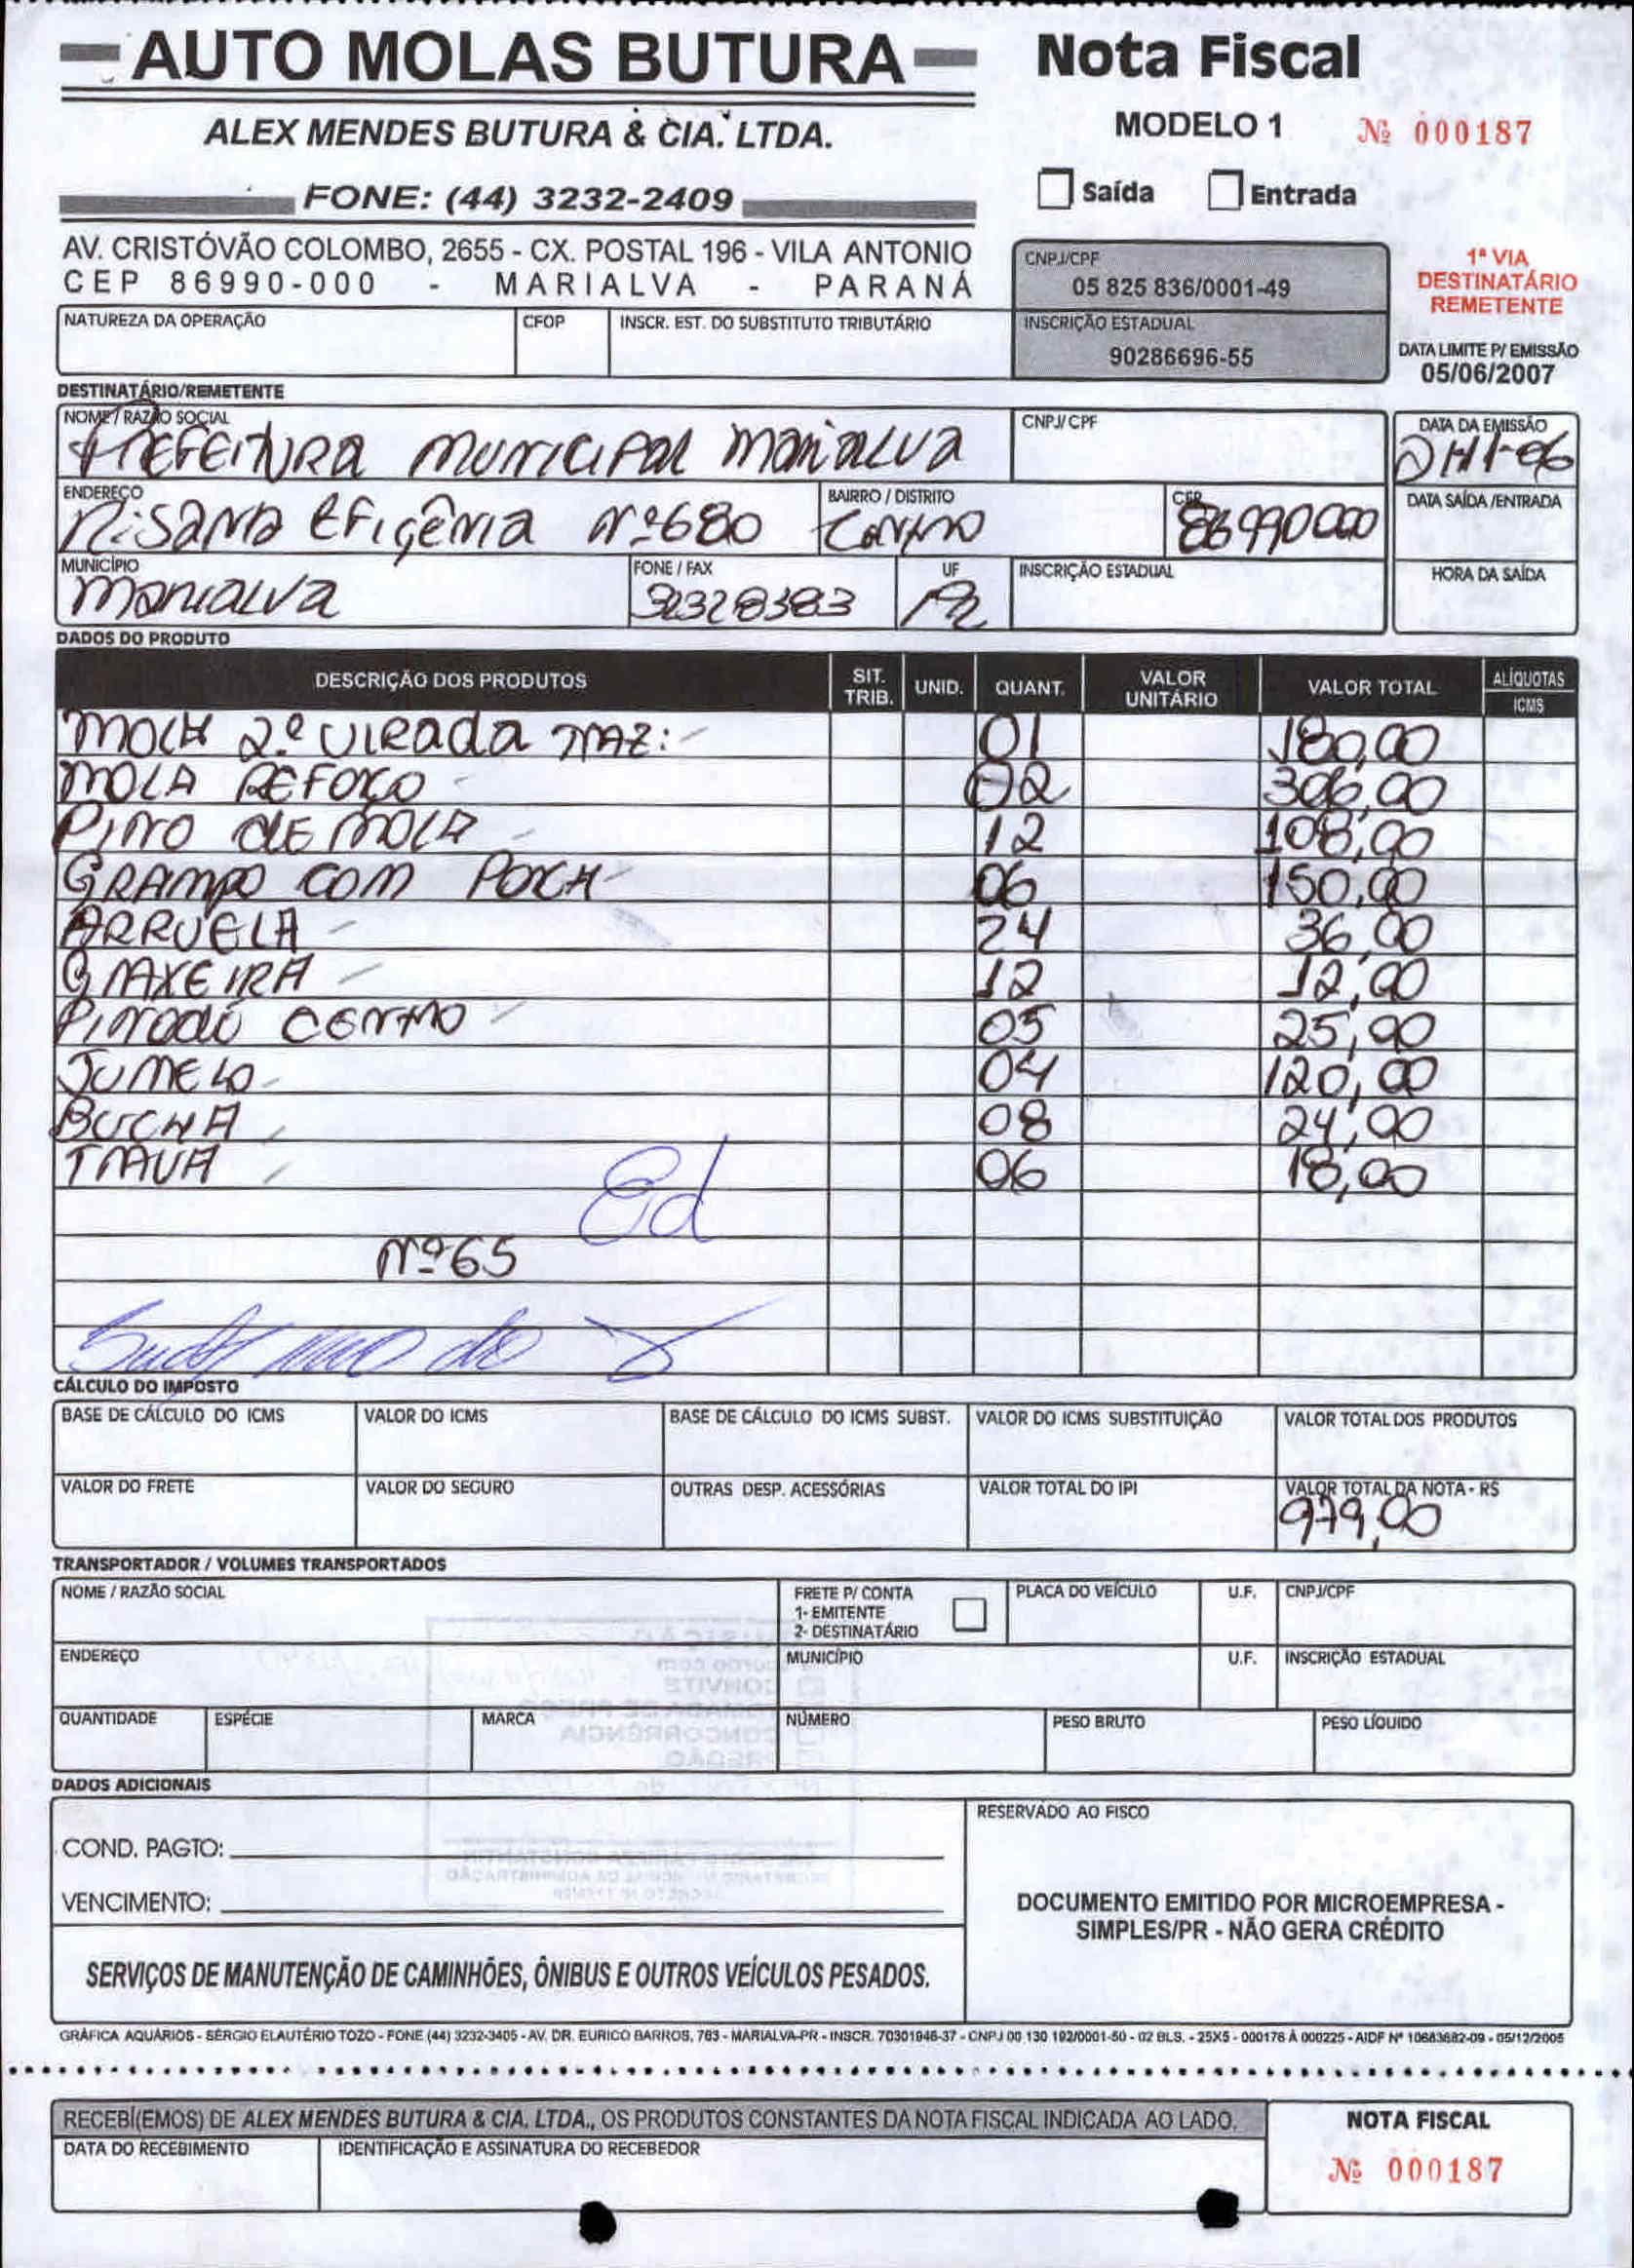 AUTO MOLAS BUTURA
ALEX MENDES BUTURA & CIA. LTDA.
FONE: (44) 3232-2409
AV. CRISTÓVÃO COLOMBO, 2655 - CX. POSTAL 196 - VILA ANTONIO
CEP 86990-000 - MARIALVA - PARANÁ
Nota Fiscal
MODELO 1 Nº 000187
Saída Entrada
CNPJ/CPF
05 825 836/0001-49
INSCRIÇÃO ESTADUAL
90286696-55
1ª VIA
DESTINATÁRIO
REMETENTE
DATA LIMITE P/ EMISSÃO
05/06/2007
NATUREZA DA OPERAÇÃO CFOP INSCR. EST. DO SUBSTITUTO TRIBUTÁRIO
DESTINATÁRIO/REMETENTE
NOME / RAZÃO SOCIAL CNPJ/CPF DATA DA EMISSÃO
PREFEITURA MUNICIPAL MARIALVA
ENDEREÇO BAIRRO / DISTRITO CEP DATA SAÍDA /ENTRADA
EFIGÊNIA Nº 680 86990000
MUNICÍPIO FONE / FAX UF INSCRIÇÃO ESTADUAL HORA DA SAÍDA
MARIALVA 32328383 PR
DADOS DO PRODUTO
DESCRIÇÃO DOS PRODUTOS SIT. TRIB. UNID. QUANT. VALOR UNITÁRIO VALOR TOTAL ALÍQUOTAS ICMS
MOLA 2º VIRADA TRAZ: 01 180,00
MOLA REFORÇO 02 306,00
PINO DE MOLA 12 108,00
GRAMPO COM PORCA 06 150,00
ARRUELA 24 36,00
GRAXEIRA 12 12,00
PINO DE CENTRO 05 25,00
JUMELO 04 120,00
BUCHA 08 24,00
TRAVA 06 18,00
Ed
Nº 65
CÁLCULO DO IMPOSTO
BASE DE CÁLCULO DO ICMS VALOR DO ICMS BASE DE CÁLCULO DO ICMS SUBST. VALOR DO ICMS SUBSTITUIÇÃO VALOR TOTAL DOS PRODUTOS
VALOR DO FRETE VALOR DO SEGURO OUTRAS DESP. ACESSÓRIAS VALOR TOTAL DO IPI VALOR TOTAL DA NOTA - R$
979,00
TRANSPORTADOR / VOLUMES TRANSPORTADOS
NOME / RAZÃO SOCIAL FRETE P/ CONTA PLACA DO VEÍCULO U.F. CNPJ/CPF
1- EMITENTE
2- DESTINATÁRIO
ENDEREÇO MUNICÍPIO U.F. INSCRIÇÃO ESTADUAL
QUANTIDADE ESPÉCIE MARCA NÚMERO PESO BRUTO PESO LÍQUIDO
DADOS ADICIONAIS
COND. PAGTO:
VENCIMENTO:
SERVIÇOS DE MANUTENÇÃO DE CAMINHÕES, ÔNIBUS E OUTROS VEÍCULOS PESADOS.
RESERVADO AO FISCO
DOCUMENTO EMITIDO POR MICROEMPRESA -
SIMPLES/PR - NÃO GERA CRÉDITO
GRÁFICA AQUÁRIOS - SÉRGIO ELAUTÉRIO TOZO - FONE (44) 3232-3405 - AV. DR. EURICO BARROS, 763 - MARIALVA-PR - INSCR. 70301946-37 - CNPJ 00 130 192/0001-50 - 02 BLS. - 25X5 - 000176 À 000225 - AIDF Nº 10683682-09 - 05/12/2005
RECEBI(EMOS) DE ALEX MENDES BUTURA & CIA. LTDA., OS PRODUTOS CONSTANTES DA NOTA FISCAL INDICADA AO LADO.
DATA DO RECEBIMENTO IDENTIFICAÇÃO E ASSINATURA DO RECEBEDOR
NOTA FISCAL
Nº 000187